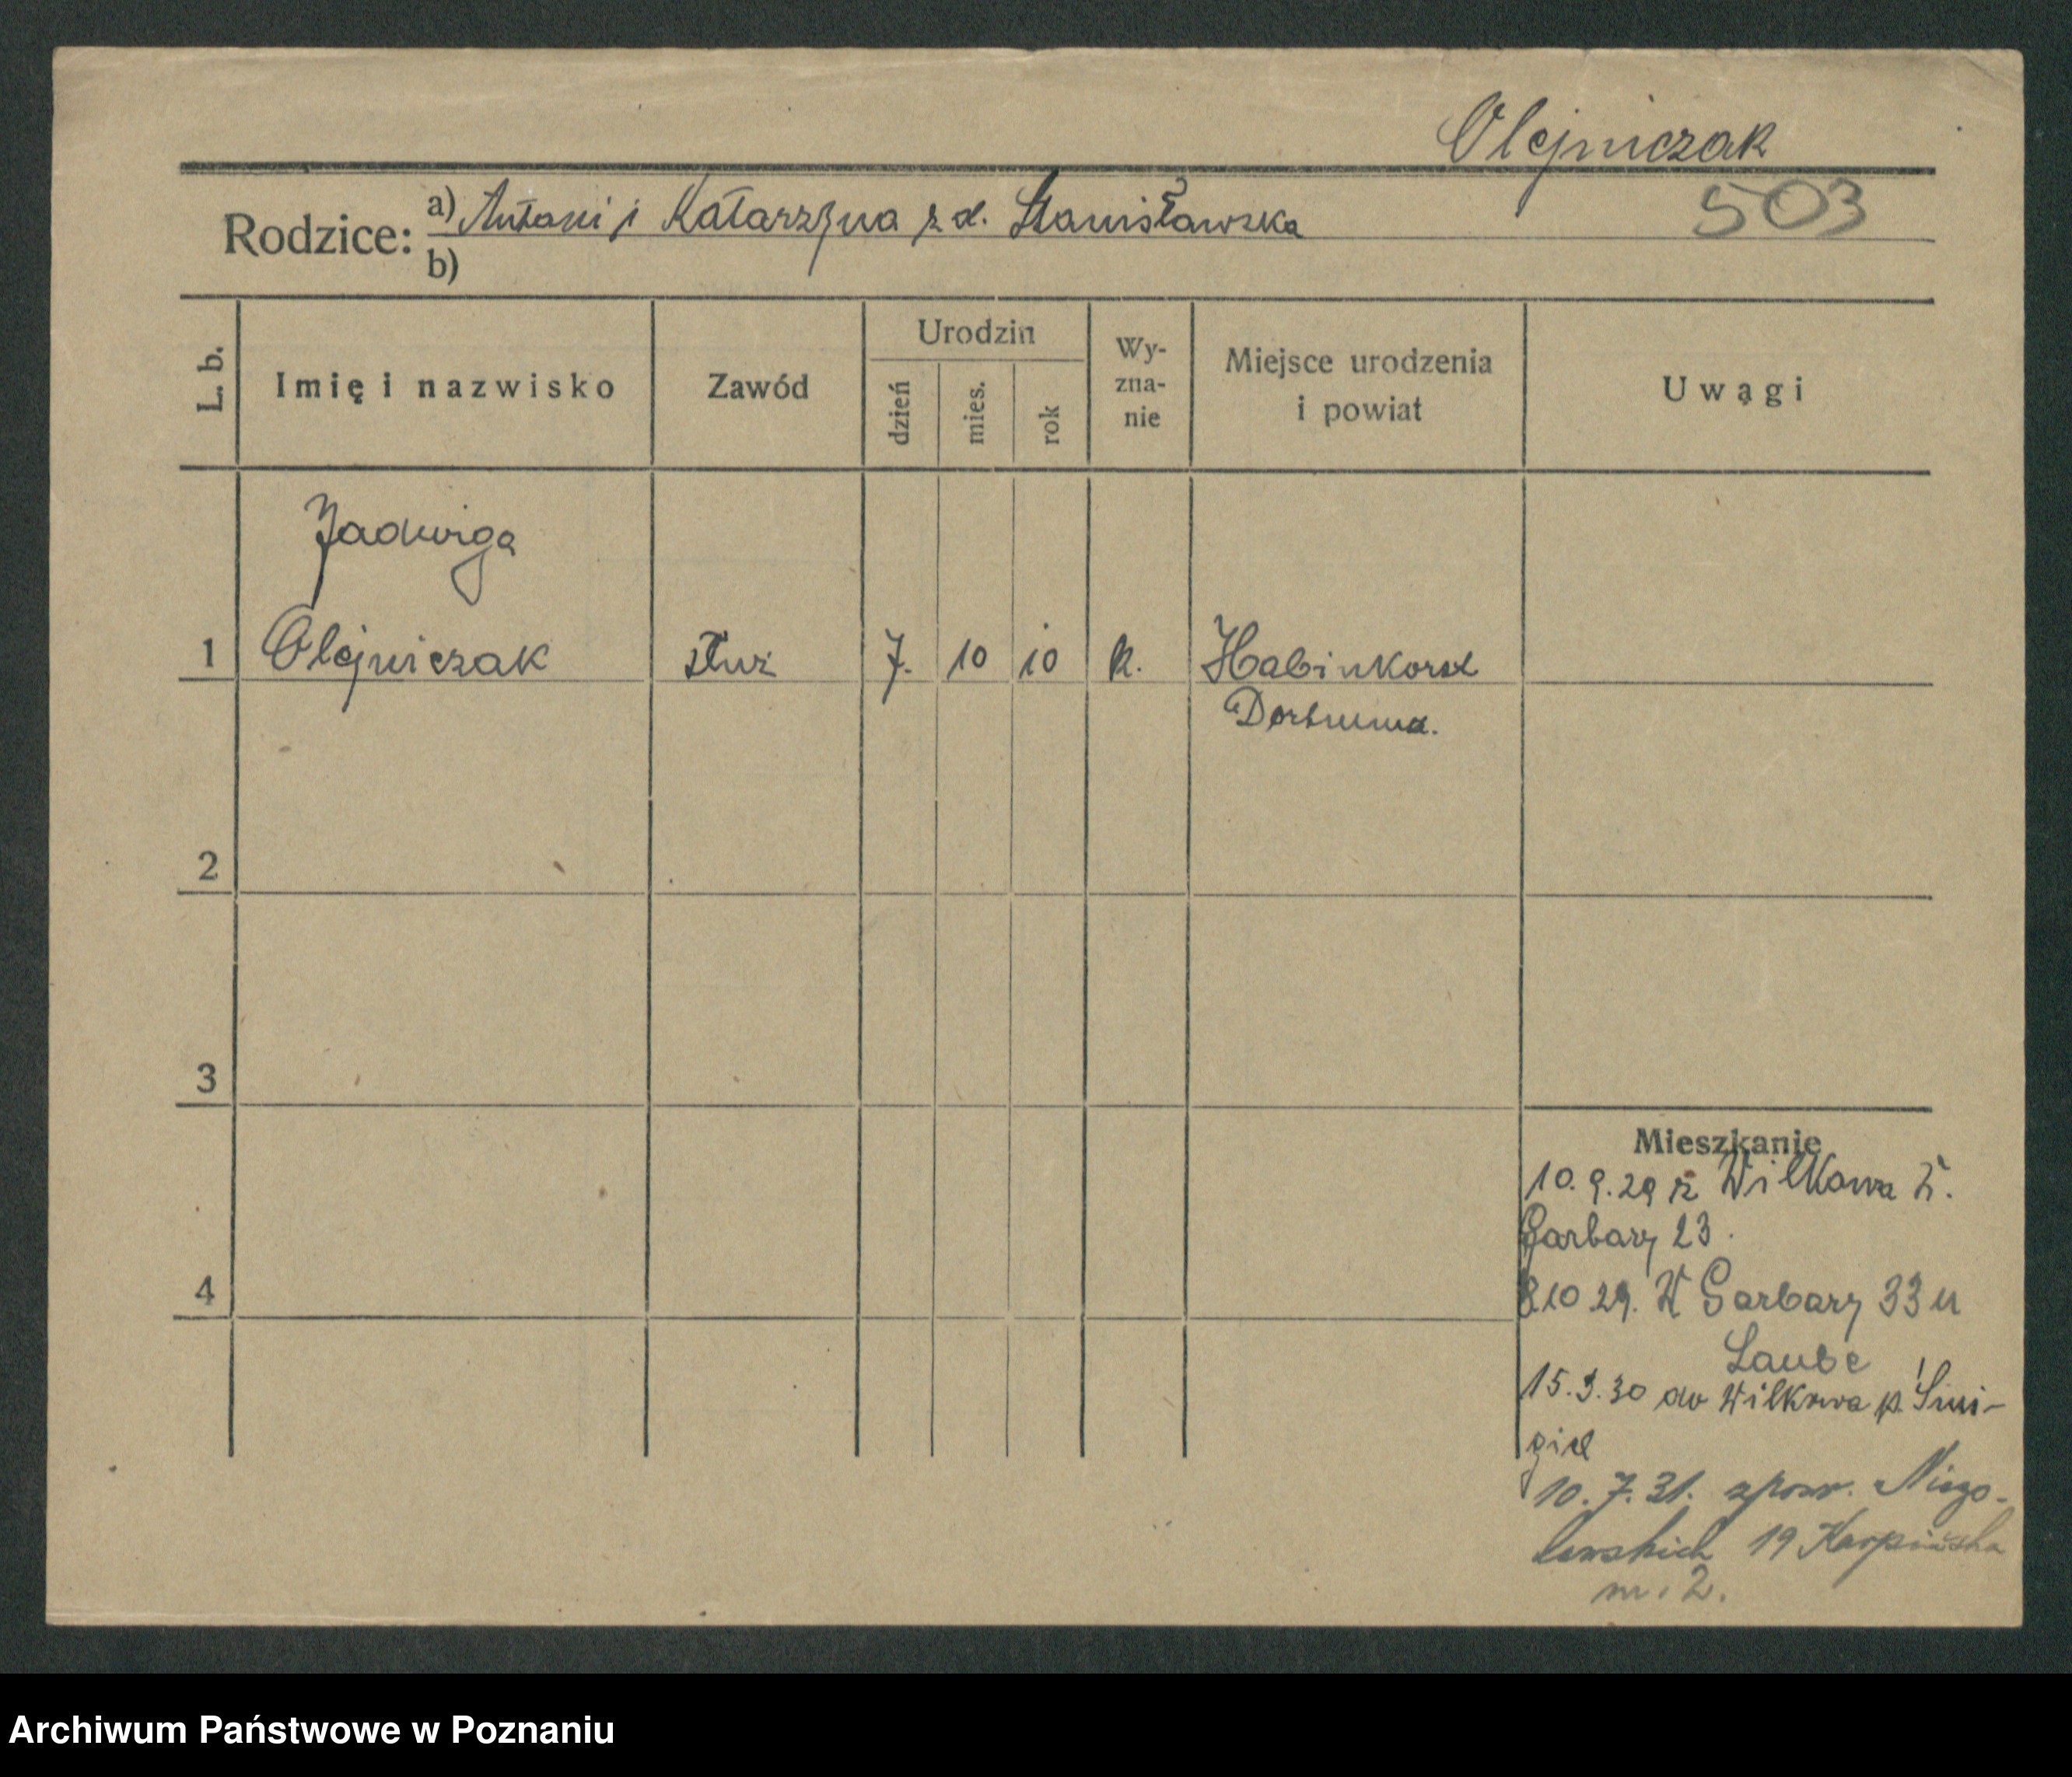 Olejniczak
503
Rodzice: a) Antoni i Katarzyna z d. Stanisławska
b)
L. b.
Imię i nazwisko
Zawód
Urodzin
dzień
mies.
rok
Wy-
zna-
nie
Miejsce urodzenia
i powiat
Uwagi
Jadwiga
1 Olejniczak służ 7. 10 10 k. Habinkorst
Dortmund.
2
3
4
Mieszkanie
10.9.29 z Wilkowa
Garbary 23.
8.10.29. W Garbary 33 u
Laube
15.3.30 do Wilkowa p. Śmi-
giel
10.7.31. zpow. Niego-
lewskich 19 Karpińska
m. 2.
Archiwum Państwowe w Poznaniu